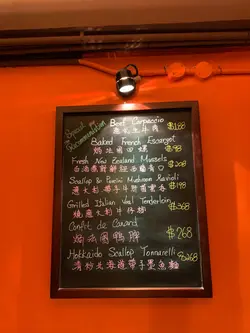 Special Recommendation
Beef Carpaccio $188
意大生牛肉
Baked French Escargot
焗法國田螺 $98
Fresh New England Mussels
白酒煮新鮮藍青口 $208
Scallop & Porcini Mushroom Ravioli
意大利帶子牛肝菌雲呑 $198
Grilled Italian Veal Tenderloin
燒意大利牛仔柳 $268
Confit de Canard
焗法國鴨脾 $268
Hokkaido Scallop Tonnarelli
清炒北海道帶子墨魚麵 $268